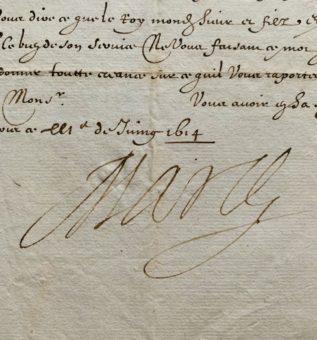 Vous dire ce que le Roy mond. s.r et filz,
le bien de son service Ne Vous faisant ce mot
donner toutte creance sur ce quil Vous raportera
Mons.r Vous avoir en sa
ce IIII.e de Juing 1614
Marie